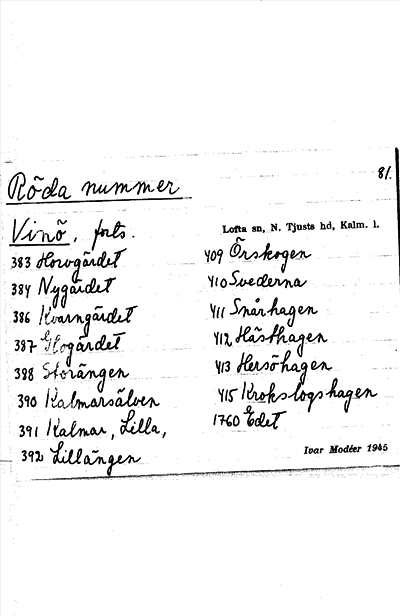 Röda nummer
81.
Vinö, forts.
Lofta sn, N. Tjusts hd, Kalm. l.
383 Horvgärdet
384 Nygärdet
386 Kvarngärdet
387 Glogärdet
388 Storängen
390 Kalmarsälven
391 Kalmar, Lilla,
392 Lillängen
409 Örskogen
410 Svederna
411 Snårhagen
412 Hästhagen
413 Hersöhagen
415 Krokslogshagen
1760 Edet
Ivar Modéer 1945